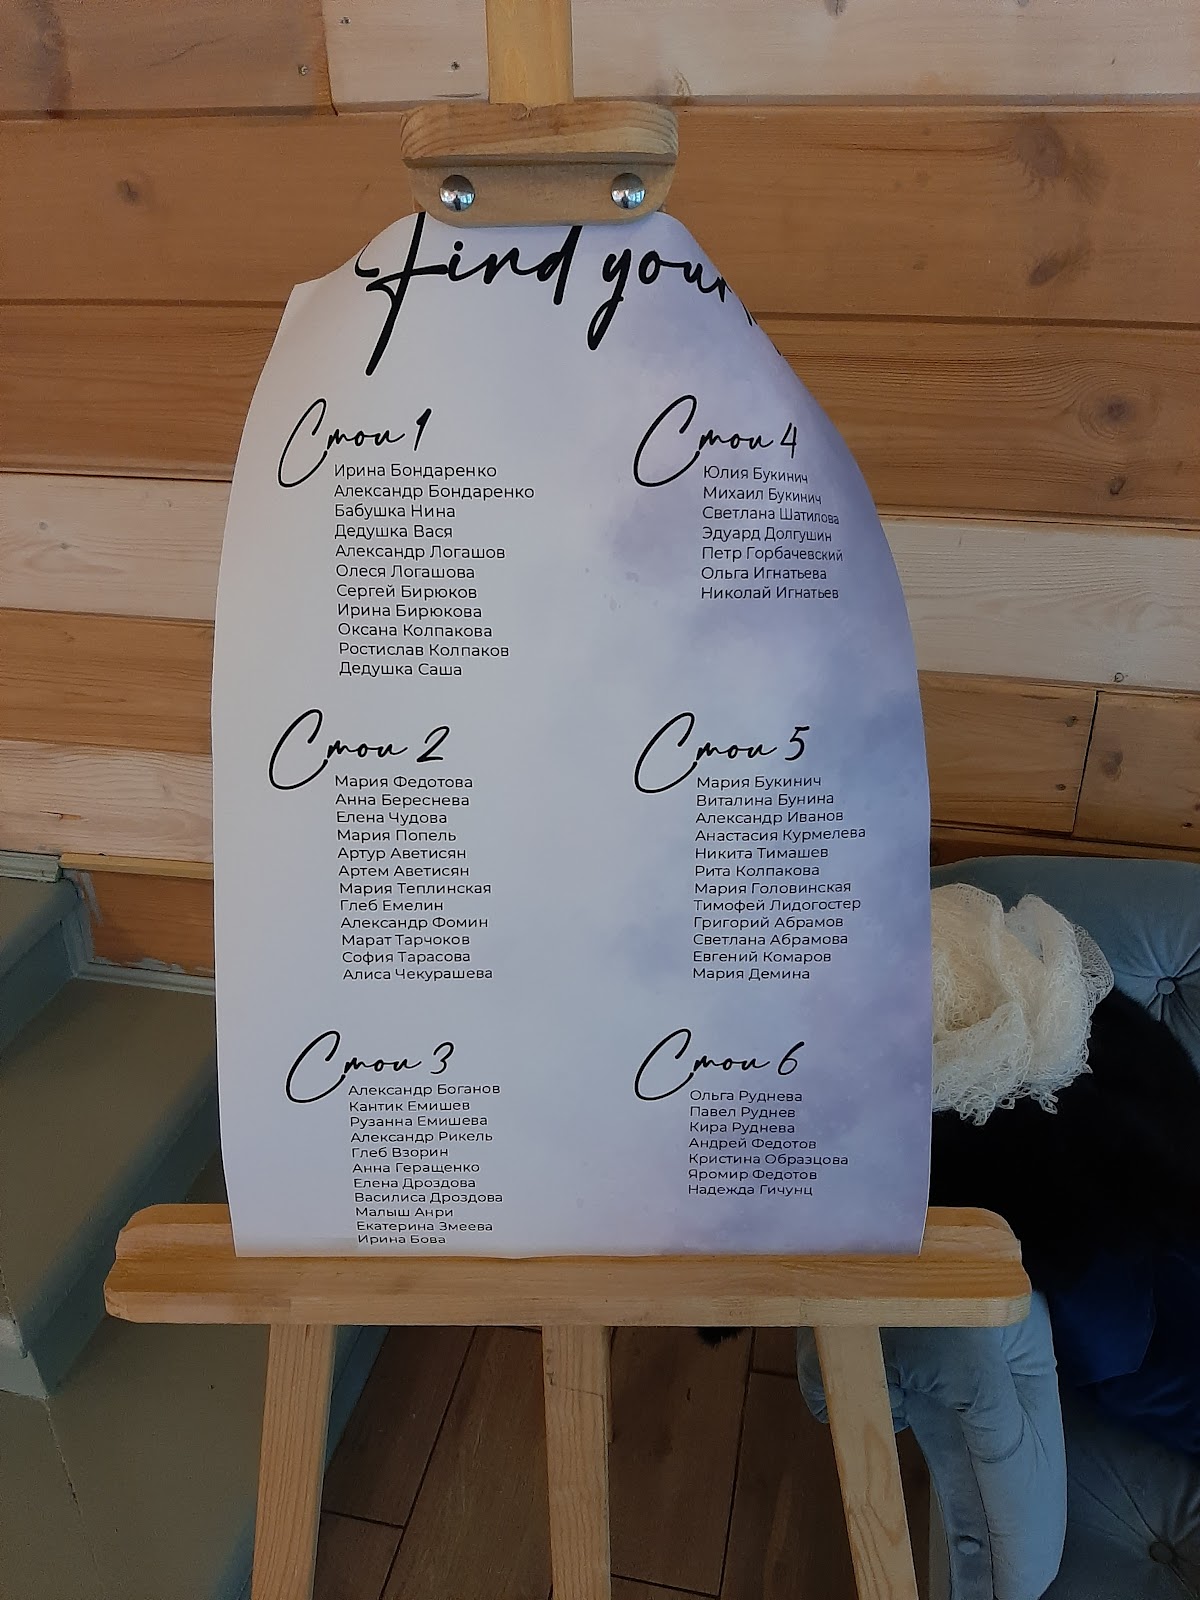 Find your
Стол 1
Ирина Бондаренко
Александр Бондаренко
Бабушка Нина
Дедушка Вася
Александр Логашов
Олеся Логашова
Сергей Бирюков
Ирина Бирюкова
Оксана Колпакова
Ростислав Колпаков
Дедушка Саша
Стол 2
Мария Федотова
Анна Береснева
Елена Чудова
Мария Попель
Артур Аветисян
Артем Аветисян
Мария Теплинская
Глеб Емелин
Александр Фомин
Марат Тарчоков
София Тарасова
Алиса Чекурашева
Стол 3
Александр Боганов
Кантик Емишев
Рузанна Емишева
Александр Рикель
Глеб Взорин
Анна Геращенко
Елена Дроздова
Василиса Дроздова
Малыш Анри
Екатерина Змеева
Ирина Бова
Стол 4
Юлия Букинич
Михаил Букинич
Светлана Шатилова
Эдуард Долгушин
Петр Горбачевский
Ольга Игнатьева
Николай Игнатьев
Стол 5
Мария Букинич
Виталина Бунина
Александр Иванов
Анастасия Курмелева
Никита Тимашев
Рита Колпакова
Мария Головинская
Тимофей Лидогостер
Григорий Абрамов
Светлана Абрамова
Евгений Комаров
Мария Демина
Стол 6
Ольга Руднева
Павел Руднев
Кира Руднева
Андрей Федотов
Кристина Образцова
Яромир Федотов
Надежда Гичунц